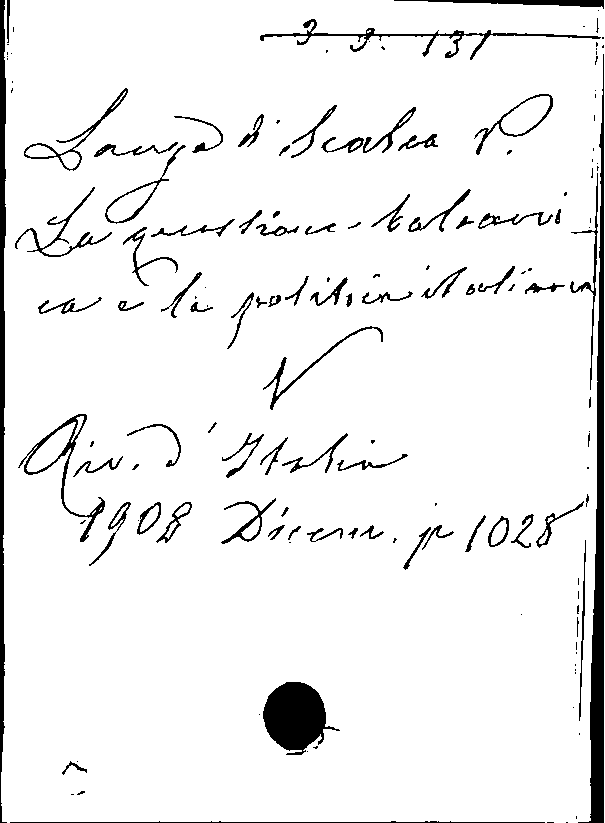 3. 3. 131
Lanza di Scalea P.
La questione balcani_
ca e la politica italiana
V
Riv. d'Italia
1908 Dicem. p 1028